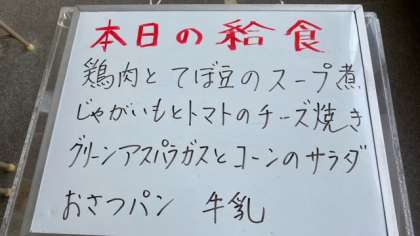 本日の給食
鶏肉と てぼ豆のスープ煮
じゃがいもとトマトのチーズ焼き
グリーンアスパラガスとコーンのサラダ
おさつパン 牛乳